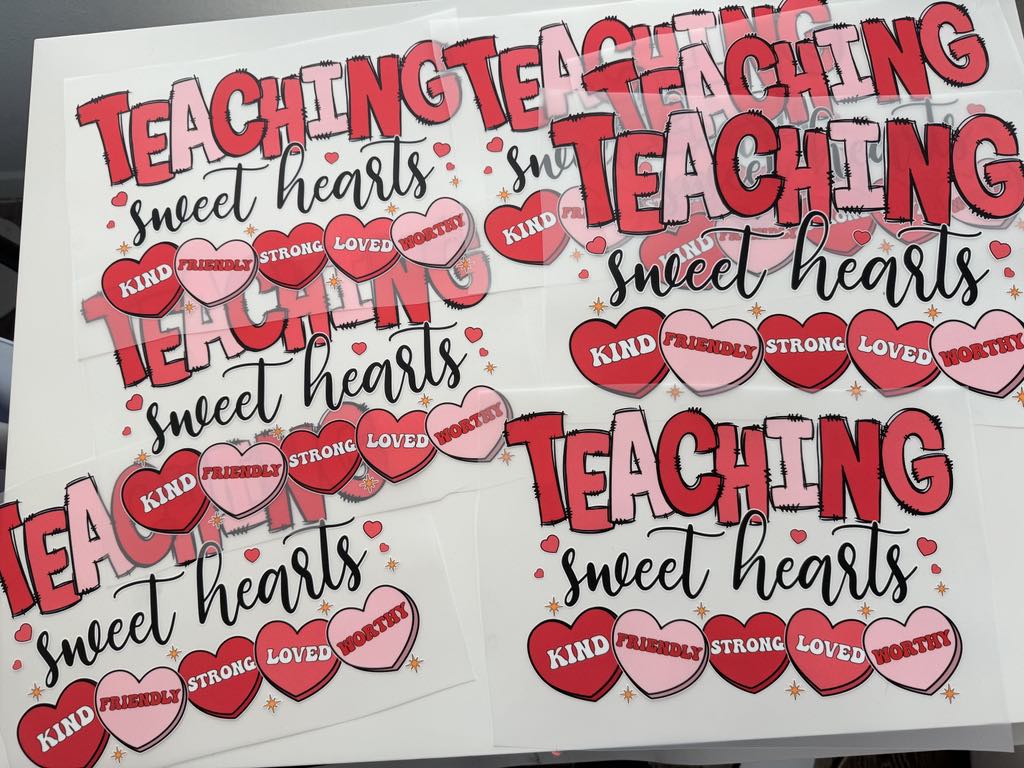 TEACHING
sweet hearts
KIND FRIENDLY STRONG LOVED WORTHY
TEACHING
KIND
TEACHING
KIND FRIENDLY STRONG
TEACHING
sweet hearts
KIND FRIENDLY STRONG LOVED WORTHY
TEACHING
sweet hearts
KIND FRIENDLY STRONG LOVED WORTHY
TEACHING
sweet hearts
KIND FRIENDLY STRONG LOVED WORTHY
TEACHING
sweet hearts
KIND FRIENDLY STRONG LOVED WORTHY